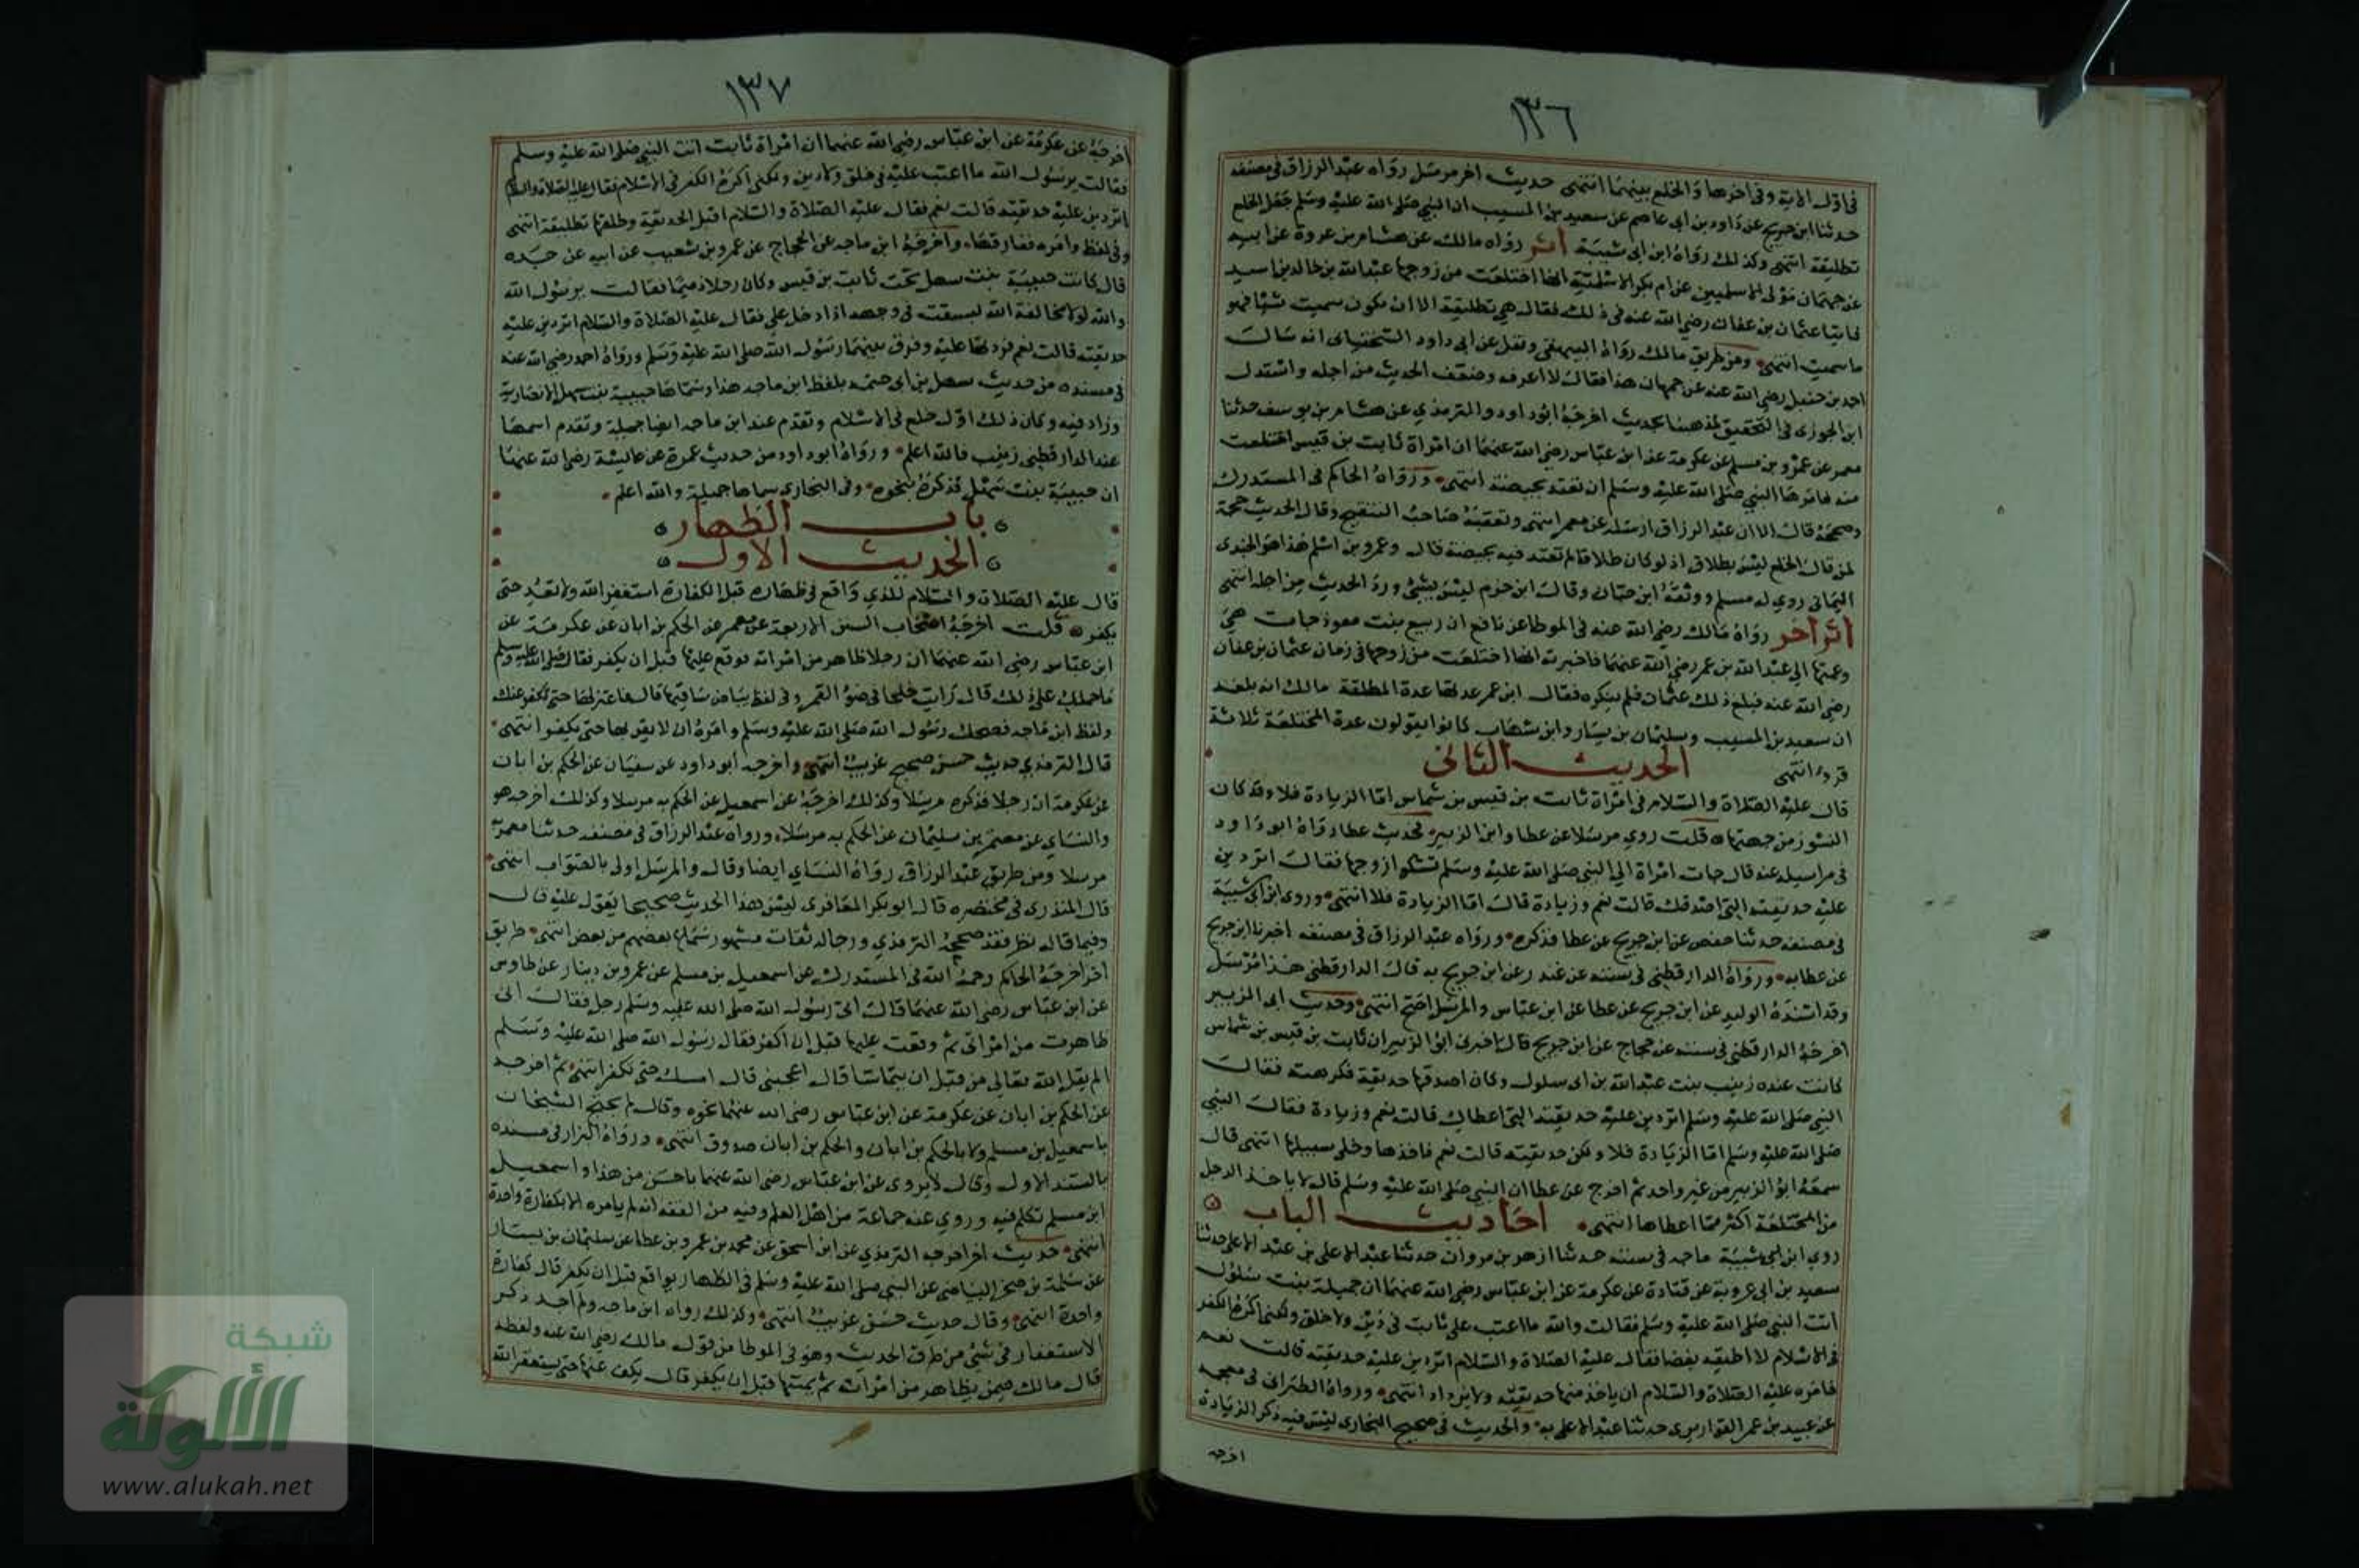 ١٣٦
في اول الاية وفي اخرها والخلع بينهما انتهى حديث اخر مرسل رواه عبد الرزاق في مصنفه
حدثنا ابن جريج عن داود بن ابي عاصم عن سعيد بن المسيب ان النبي صلى الله عليه وسلم جعل الخلع
تطليقة انتهى وكذلك رواه ابن ابي شيبة اثر رواه مالك عن هشام بن عروة عن ابيه
عن جمهان مولى الاسلميين عن ام بكر الاسلمية انها اختلعت من زوجها عبد الله بن خالد بن اسيد
فاتيا عثمان بن عفان رضي الله عنه في ذلك فقال هي تطليقة الا ان يكون سميت شيا فهو
ما سميت انتهى ومن طريق مالك رواه البيهقي ونقل عن ابي داود السختياني انه سال
احمد بن حنبل رضي الله عنه عن جمهان هذا فقال لا اعرفه وضعف الحديث من اجله واستدل
ابن الجوزي في التحقيق لمذهبنا بحديث اخرجه ابو داود والترمذي عن هشام بن يوسف حدثنا
معمر عن عمرو بن مسلم عن عكرمة عن ابن عباس رضي الله عنهما ان امراة ثابت بن قيس اختلعت
منه فامرها النبي صلى الله عليه وسلم ان تعتد بحيضة انتهى ورواه الحاكم في المستدرك
وصححه قال الا ان عبد الرزاق ارسله عن معمر انتهى وتعقبه صاحب التنقيح وقال الحديث حجة
لمن قال الخلع ليس بطلاق اذ لو كان طلاقا لم تعتد فيه بحيضة قال وعمرو بن اسلم هذا هو الجندي
اليماني روي له مسلم ووثقه ابن حبان وقال ابن حزم ليس بشئ ورد الحديث من اجله انتهى
اثر اخر رواه مالك رضي الله عنه في الموطا عن نافع ان ربيع بنت معوذ جات هي
وعمتها الي عبد الله بن عمر رضي الله عنهما فاخبرته انها اختلعت من زوجها في زمان عثمان بن عفان
رضي الله عنه فبلغ ذلك عثمان فلم ينكره فقال ابن عمر عدتها عدة المطلقة مالك انه بلغه
ان سعيد بن المسيب وسليمان بن يسار وابن شهاب كانوا يقولون عدة المختلعة ثلاثة
قروء انتهى الحديث الثاني
قال عليه الصلاة والسلام في امراة ثابت بن قيس بن شماس اما الزيادة فلا وقد كان
النشوز من جهتها قلت روي مرسلا عن عطا وابن الزبير فحديث عطا رواه ابو داود
في مراسيله عنه قال جات امراة الي النبي صلى الله عليه وسلم تشكوا زوجها فقال اتردين
عليه حديقته التي اصدقك قالت نعم وزيادة قال اما الزيادة فلا انتهى وروى ابن ابي شيبة
في مصنفه حدثنا حفص عن ابن جريج عن عطا فذكره ورواه عبد الرزاق في مصنفه اخبرنا ابن جريج
عن عطا به ورواه الدارقطني في سننه عن غندر عن ابن جريج به قال الدارقطني هذا مرسل
وقد اسنده الوليد عن ابن جريج عن عطا عن ابن عباس والمرسل اصح انتهى وحديث ابي الزبير
اخرجه الدارقطني في سننه عن حجاج عن ابن جريج قال اخبرني ابو الزبير ان ثابت بن قيس بن شماس
كانت عنده زينب بنت عبد الله بن ابي سلول وكان اصدقها حديقة فكرهته فقال
النبي صلى الله عليه وسلم اتردين عليه حديقته التي اعطاك قالت نعم وزيادة فقال النبي
صلى الله عليه وسلم اما الزيادة فلا ولكن حديقته قالت نعم فاخذها وخلى سبيلها انتهى قال
سمعه ابو الزبير من غير واحد ثم اخرج عن عطا ان النبي صلى الله عليه وسلم قال لا ياخذ الرجل
من المختلعة اكثر مما اعطاها انتهى احاديث الباب
روي ابن ابي شيبة ماجه في سننه حدثنا ازهر بن مروان حدثنا عبد الاعلى بن عبد الاعلى حدثنا
سعيد بن ابي عروبة عن قتادة عن عكرمة عن ابن عباس رضي الله عنهما ان جميلة بنت سلول
اتت النبي صلى الله عليه وسلم فقالت والله ما اعتب على ثابت في دين ولا خلق ولكني اكره الكفر
في الاسلام لا اطيقه بغضا فقال عليه الصلاة والسلام اتردين عليه حديقته قالت نعم
فامره عليه الصلاة والسلام ان ياخذ منها حديقته ولا يزداد انتهى ورواه الطبراني في معجمه
عن عبيد بن عمر القواريري حدثنا عبد الاعلى به والحديث في صحيح البخاري ليس فيه ذكر الزيادة
اخرجه
١٣٧
اخرجه عن عكرمة عن ابن عباس رضي الله عنهما ان امراة ثابت اتت النبي صلى الله عليه وسلم
فقالت يرسول الله ما اعتب عليه في خلق ولا دين ولكني اكره الكفر في الاسلام فقال عليه الصلاة والسلام
اتردين عليه حديقته قالت نعم فقال عليه الصلاة والسلام اقبل الحديقة وطلقها تطليقة انتهى
وفي لفظ وامره ففارقها واخرجه ابن ماجه عن الحجاج عن عمرو بن شعيب عن ابيه عن جده
قال كانت حبيبة بنت سهل تحت ثابت بن قيس وكان رجلا دميما فقالت يرسول الله
والله لولا مخالفة الله لبسقت في وجهه اذا دخل علي فقال عليه الصلاة والسلام اتردين عليه
حديقته قالت نعم فردتها عليه وفرق بينهما رسول الله صلى الله عليه وسلم ورواه احمد رضي الله عنه
في مسنده من حديث سهل بن ابي حثمة بلفظ ابن ماجه هذا وسماها حبيبة بنت سهل الانصارية
وزاد فيه وكان ذلك اول خلع في الاسلام وتقدم عند ابن ماجه ايضا جميلة وتقدم اسمها
عند الدارقطني زينب فالله اعلم ورواه ابو داود من حديث عمرة عن عائشة رضي الله عنها
ان حبيبة بنت سهل فذكره بنحوه وفي البخاري سماها جميلة والله اعلم
باب الظهار
الحديث الاول
قال عليه الصلاة والسلام للذي واقع في ظهاره قبل الكفارة استغفر الله ولا تعد حتى
يكفر قلت اخرجه اصحاب السنن الاربعة عن معمر عن الحكم بن ابان عن عكرمة عن
ابن عباس رضي الله عنهما ان رجلا ظاهر من امراته فوقع عليها قبل ان يكفر فقال صلى الله عليه وسلم
ما حملك على ذلك قال رايت خلخالها في ضوء القمر وفي لفظ بياض ساقيها قال فاعتزلها حتى تكفر عنك
ولفظ ابن ماجه فضحك رسول الله صلى الله عليه وسلم وامره ان لا يقربها حتى يكفر انتهى
قال الترمذي حديث حسن صحيح غريب انتهى واخرجه أبو داود عن سفيان عن الحكم بن ابان
عن عكرمة ان رجلا فذكره مرسلا وكذلك اخرجه عن اسمعيل عن الحكم به مرسلا وكذلك اخرجه هو
والنساي عن معتمر بن سليمان عن الحكم به مرسلا ورواه عبد الرزاق في مصنفه حدثنا معمر به
مرسلا ومن طريق عبد الرزاق رواه النساي ايضا وقال والمرسل اولى بالصواب انتهى
قال المنذري في مختصره قال ابو بكر المعافري ليس هذا الحديث صحيحا يعول عليه قال
وفيما قاله نظر فقد صححه الترمذي ورجاله ثقات مشهور سماع بعضهم من بعض انتهى طريق
اخر اخرجه الحاكم رحمه الله في المستدرك عن اسمعيل بن مسلم عن عمرو بن دينار عن طاوس
عن ابن عباس رضي الله عنهما قال اتى رسول الله صلى الله عليه وسلم رجل فقال اني
ظاهرت من امراتي ثم وقعت عليها قبل ان اكفر فقال رسول الله صلى الله عليه وسلم
الم يقل الله تعالي من قبل ان يتماسا قال اعجبتني قال امسك حتى تكفر انتهى ثم اخرجه
عن الحكم بن ابان عن عكرمة عن ابن عباس رضي الله عنهما نحوه وقال لم يحتج الشيخان
باسمعيل بن مسلم ولا بالحكم بن ابان والحكم بن ابان صدوق انتهى ورواه البزار في مسنده
بالسند الاول وقال لا يروى عن ابن عباس رضي الله عنهما باحسن من هذا واسمعيل
ابن مسلم تكلم فيه وروي عنه جماعة من اهل العلم وفيه من الفقه انه لم يامره الا بكفارة واحدة
انتهى حديث اخر اخرجه الترمذي عن ابن اسحق عن محمد بن عمرو بن عطا عن سليمان بن يسار
عن سلمة بن صخر البياضي عن النبي صلى الله عليه وسلم في الظهار يواقع قبل ان يكفر قال كفارة
واحدة انتهى وقال حديث حسن غريب انتهى وكذلك رواه ابن ماجه ولم اجد ذكر
الاستغفار في شئ من طرق الحديث وهو في الموطا من قول مالك رضي الله عنه ولفظه
قال مالك فيمن يظاهر من امراته ثم يمسها قبل ان يكفر قال يكف عنها حتى يستغفر الله
شبكة
الألوكة
www.alukah.net